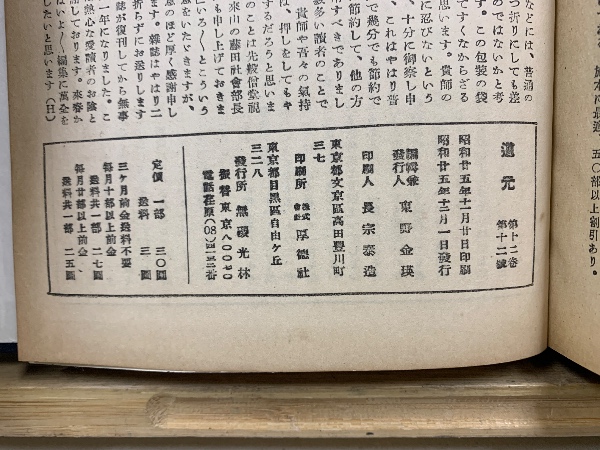 などには、普通の
つ折りにしても差
のではないかと考
す。この包装の袋
てすくなからざる
思います。貴師の
に忍びないという
、十分に御察し申
、これはやはり普
で幾分でも節約で
節約して、他の方
すべきでありまし
数多い讀者のことで
貴師や吾々の氣持
は、押しをしてもキ
するだろうと思いま
のことは先般信堂祝
来山の藤田社會部長
も申し上げておきま
いろ〳〵とこういう
意をいたゞきますが、
息のほど厚く感謝申し
ます。雑誌はやはり二
折らずにお送りします
誌が復刊してから無事
一年になりました。こ
熱心な愛讀者のお陰と
謝しております。來春か
はいよ〳〵編集に萬全を
したいと思います（日）
道元 第十二巻 第十二號
昭和廿五年十一月廿日印刷
昭和廿五年十二月一日發行
編輯兼發行人 東野金瑛
印刷人 長宗泰造
東京都文京區高田豊川町
三七
印刷所 株式會社 厚德社
東京都目黒區自由ヶ丘
三二八
發行所 無礙光林
振替東京八〇〇七〇
電話荏原(08)二三三二番
定價 一部 三〇圓
送料 三圓
三ヶ月前金送料不要
毎月十部以上前金
送料共一部 二七圓
毎月廿部以上前金、
送料共一部 二五圓
五〇部以上割引あり。